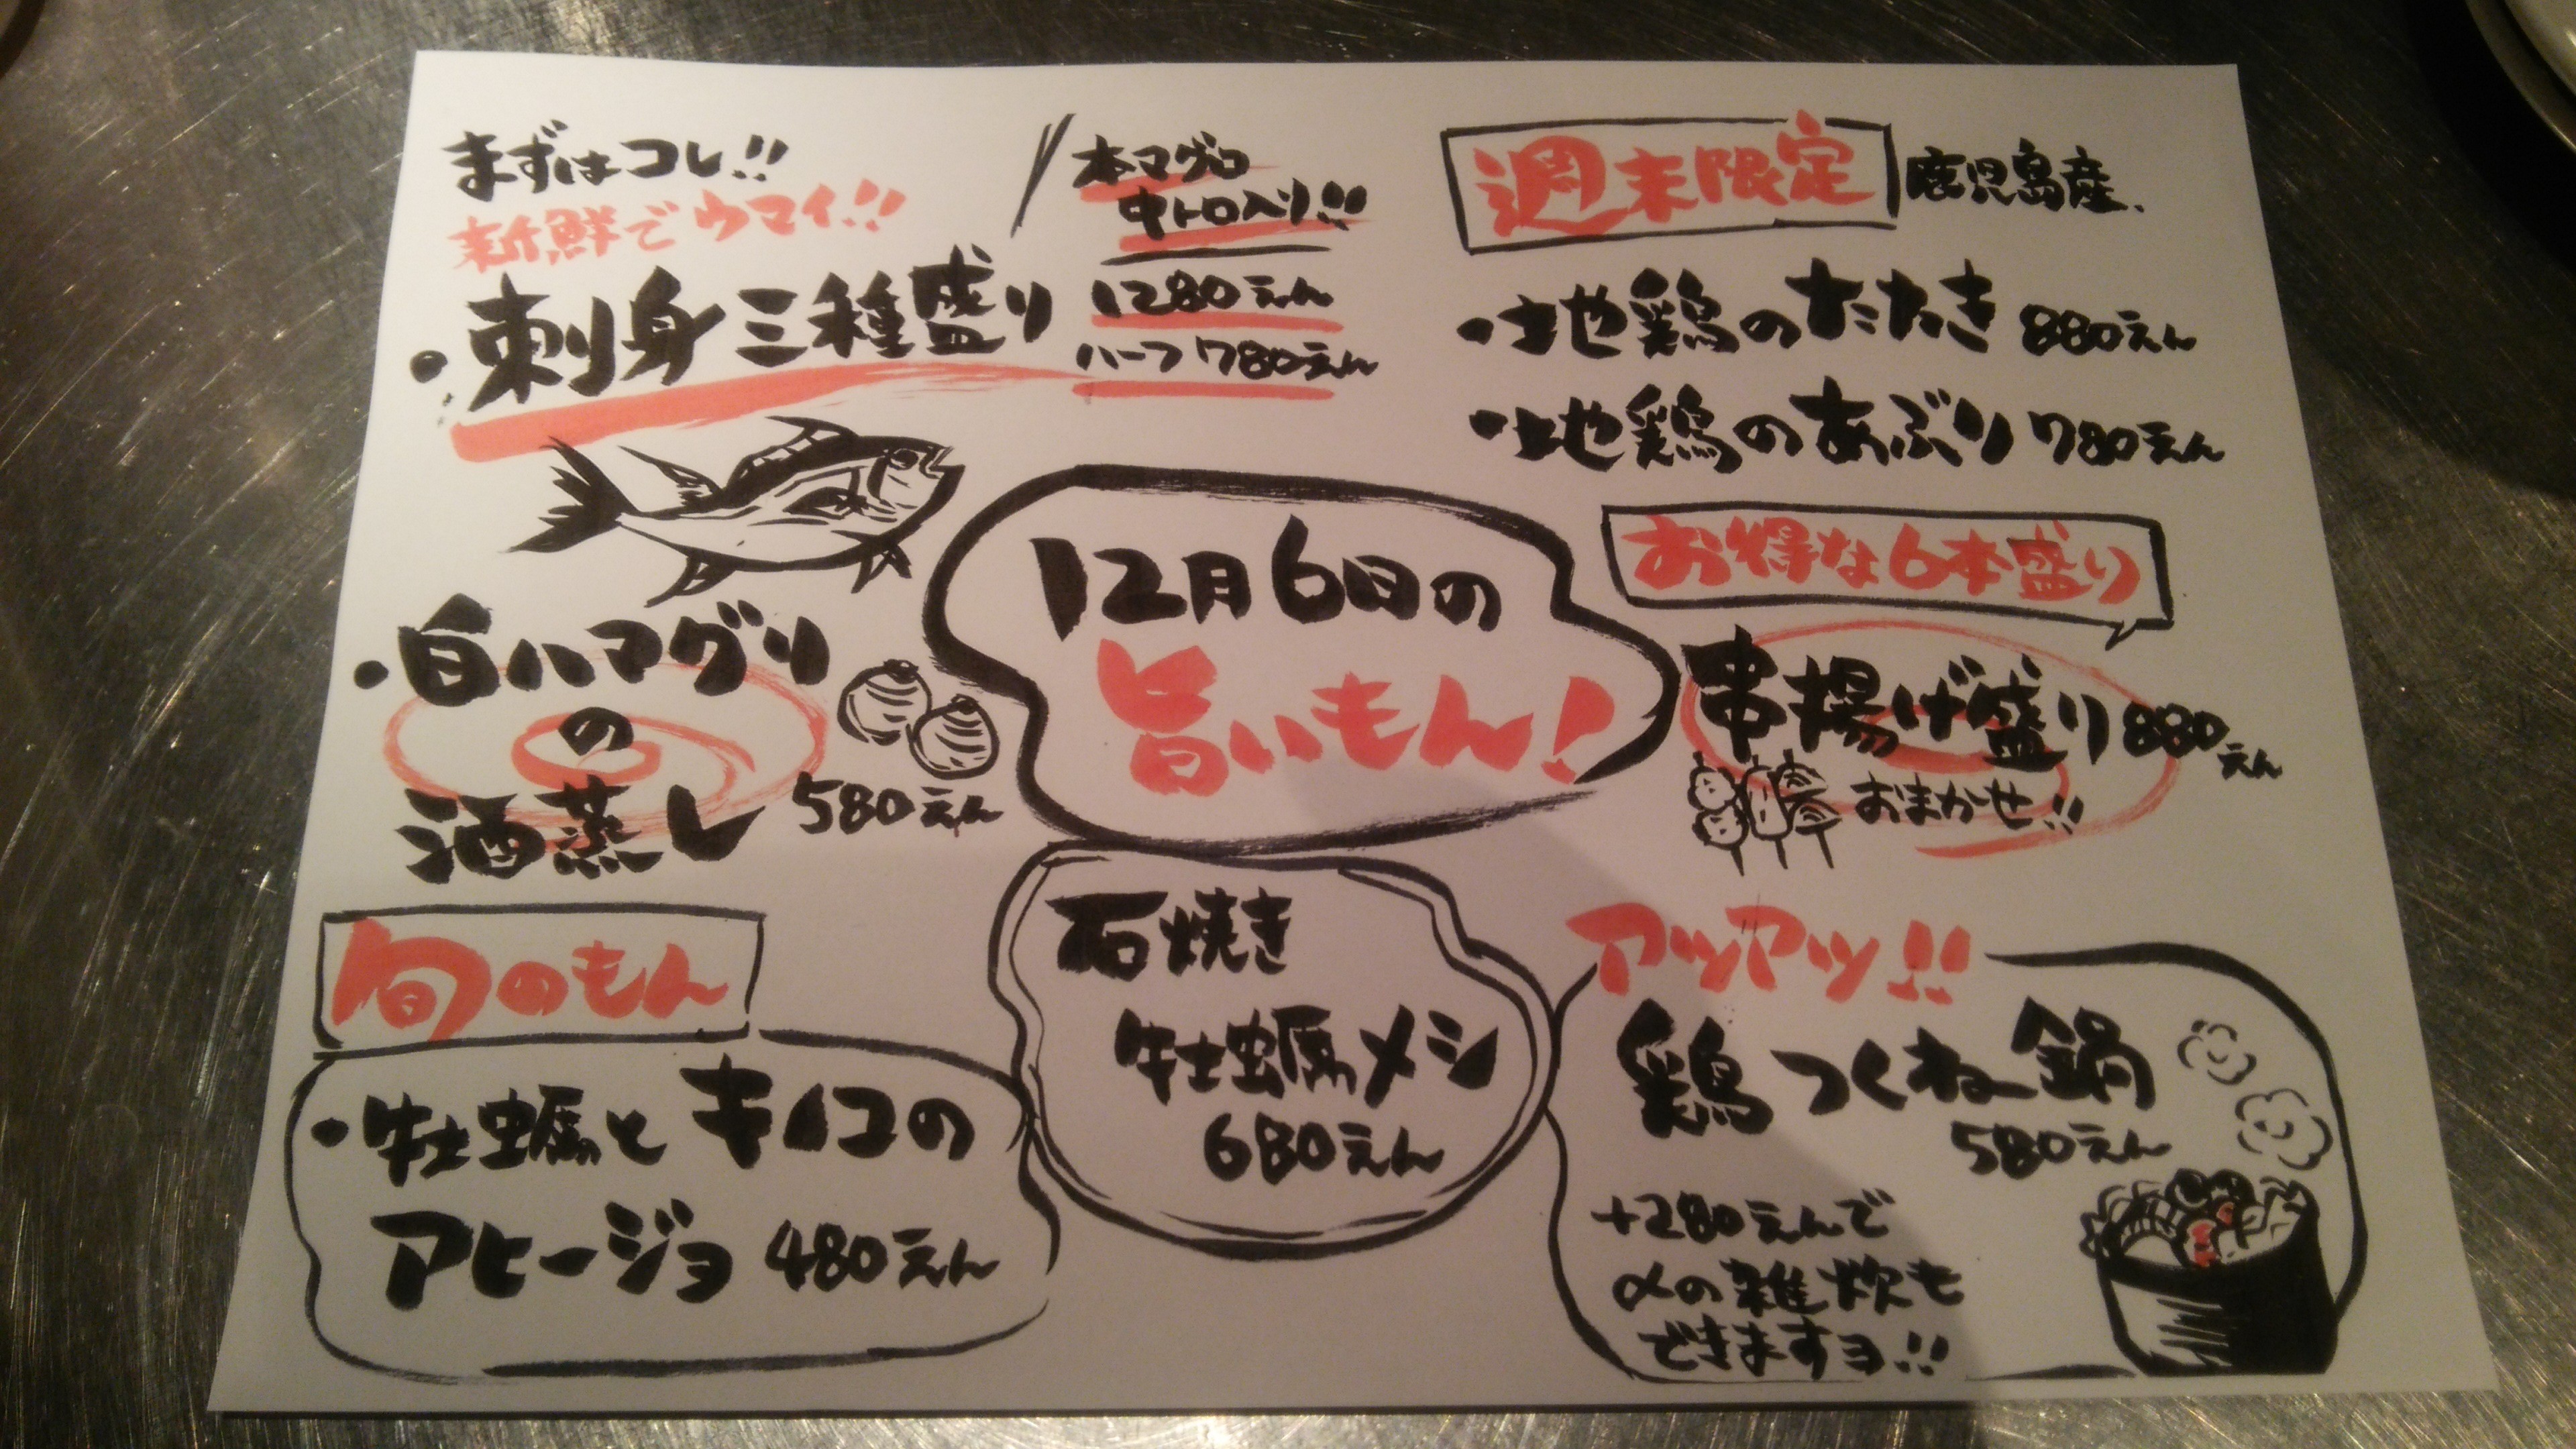 まずはコレ!!
新鮮でウマイ!!
・刺身三種盛り
本マグロ
中トロ入り!!
1280えん
ハーフ 780えん
週末限定 鹿児島産、
・地鶏のたたき 880えん
・地鶏のあぶり 780えん
12月6日の
旨いもん!
・白ハマグリ
の
酒蒸し 580えん
お得な6本盛り
串揚げ盛り 880えん
おまかせ!!
旬のもん
・牡蠣とキノコの
アヒージョ 480えん
石焼き
牡蠣メシ
680えん
アツアツ!!
鶏つくねー鍋
580えん
+280えんで
〆の雑炊も
できますヨ!!